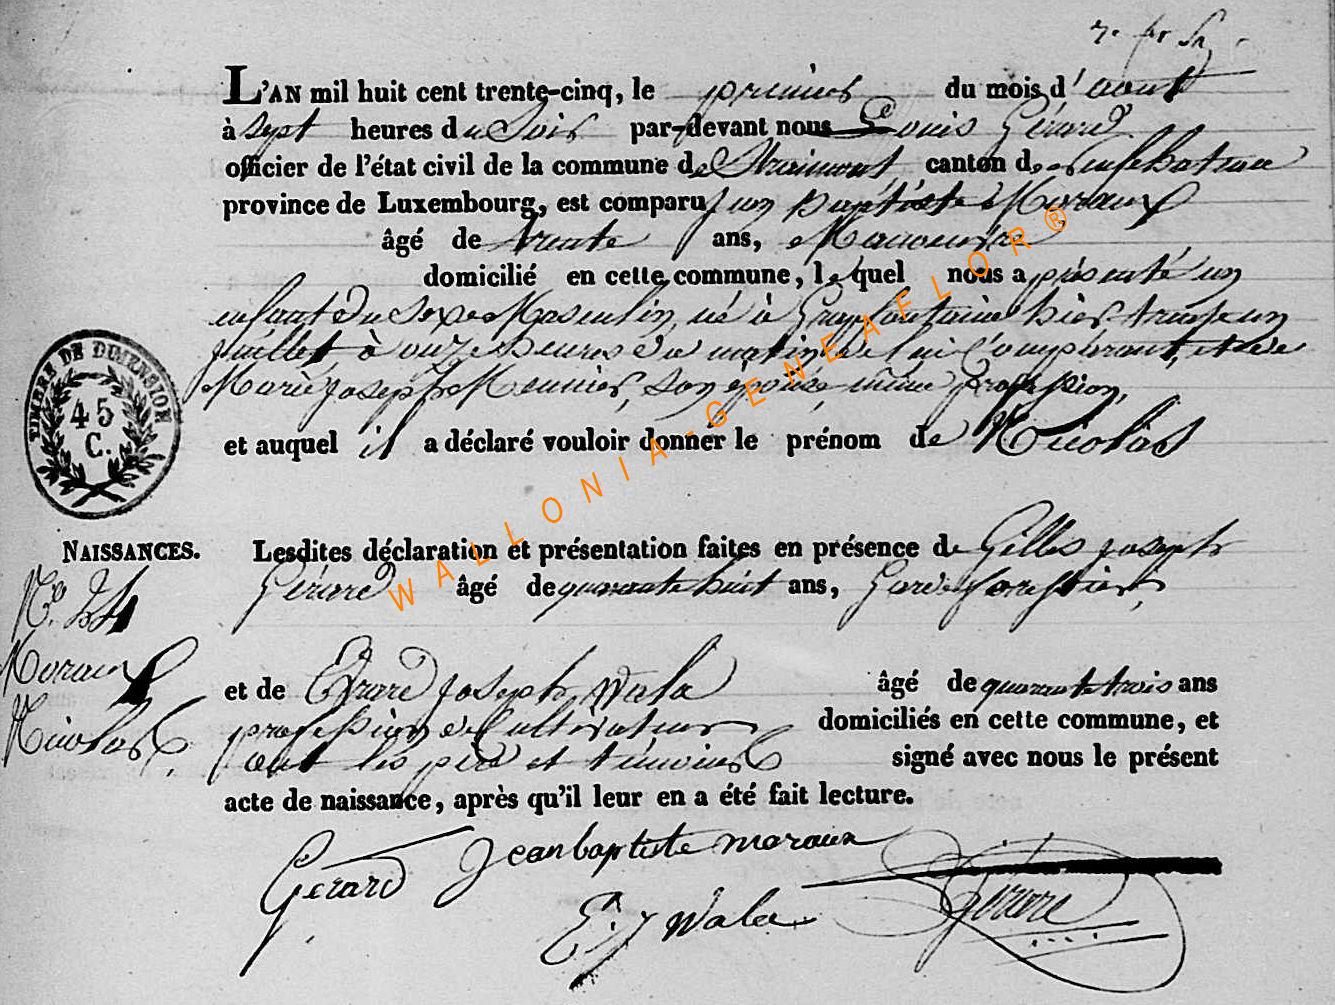 L'AN mil huit cent trente-cinq, le premier du mois d'aout
à sept heures du Soir par-devant nous Louis Gérard
officier de l'état civil de la commune de Straimont, canton de neufchateau
province de Luxembourg, est comparu Jean Baptiste Moraux
âgé de trente ans, Manoeuvre
domicilié en cette commune, lequel nous a présenté un
enfant du sexe Masculin, né à Grapfontaine hier trente un
juillet à onze heures du matin de lui Comparant, et de
Marie Joseph Meunier, son épouse même profession,
et auquel il a déclaré vouloir donner le prénom de Nicolas
TIMBRE DE DIMENSION
45
C.
NAISSANCES.
No.
Moraux
Nicolas
Lesdites déclaration et présentation faites en présence de Gilles Joseph
Gérard âgé de quarante huit ans, Garde forestier,
et de Erard Joseph Wala âgé de quarante trois ans
profession de Cultivateur domiciliés en cette commune, et
ont les père et témoins signé avec nous le présent
acte de naissance, après qu'il leur en a été fait lecture.
Gérard Jean baptiste moraux
E. J Wala Gérard
WALLONIA-GENEAFLOR®